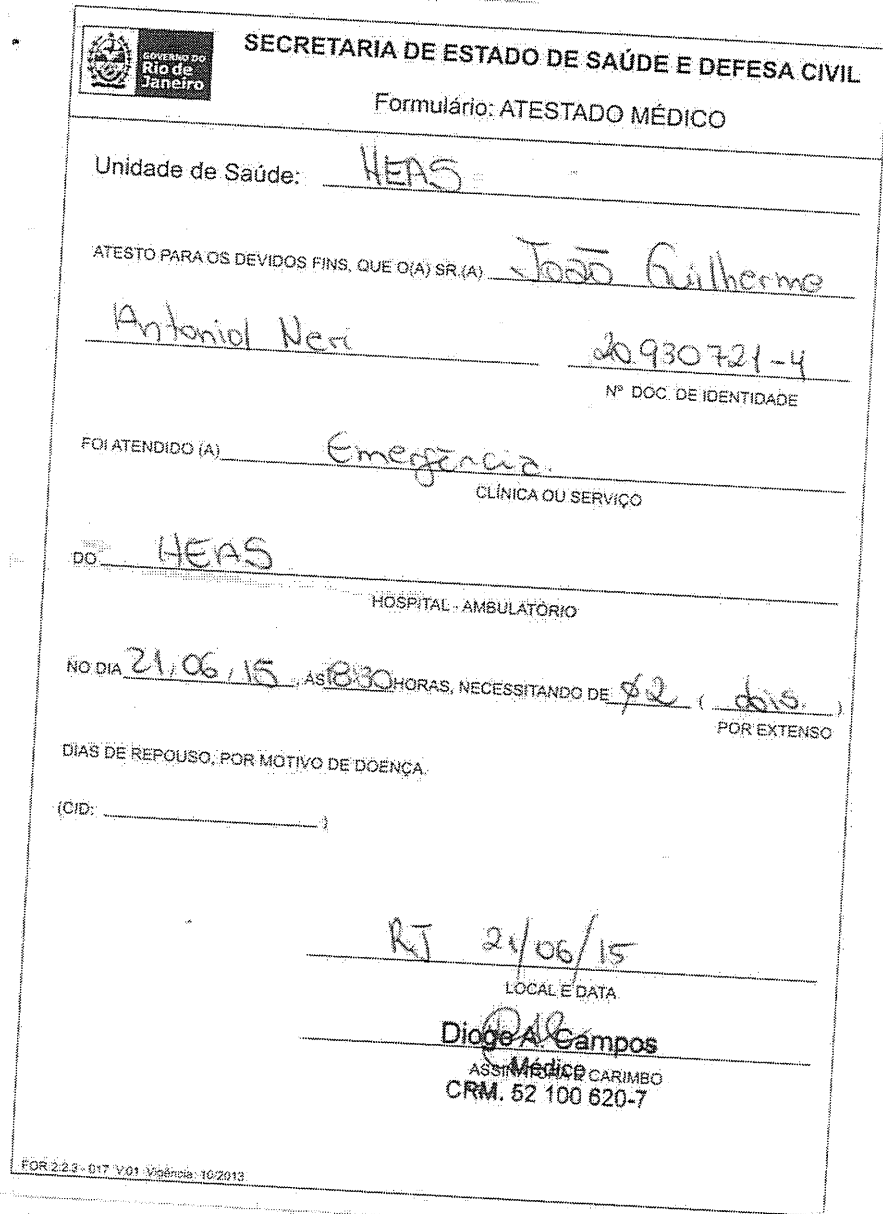 GOVERNO DO
Rio de
Janeiro
SECRETARIA DE ESTADO DE SAÚDE E DEFESA CIVIL
Formulário: ATESTADO MÉDICO
Unidade de Saúde: HEAS
ATESTO PARA OS DEVIDOS FINS, QUE O(A) SR.(A) João Guilherme
Antoniol Neri 20.930721-4
Nº DOC. DE IDENTIDADE
FOI ATENDIDO (A) Emergência.
CLÍNICA OU SERVIÇO
DO HEAS
HOSPITAL - AMBULATÓRIO
NO DIA 21/06/15, ÀS 18:30 HORAS, NECESSITANDO DE 02 ( dois. )
POR EXTENSO
DIAS DE REPOUSO, POR MOTIVO DE DOENÇA.
(CID: )
RJ 21/06/15
LOCAL E DATA
Diogo A. Campos
Médico
ASSINATURA E CARIMBO
CRM. 52 100 620-7
FOR 2.2.3 - 017 V.01 Vigência: 10/2013